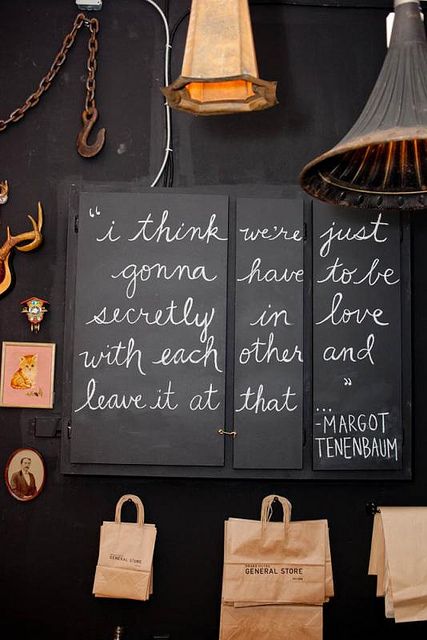 “i think we're just
gonna have to be
secretly in love
with each other and
leave it at that ”
...
-MARGOT
TENENBAUM
GENERAL STORE
GENERAL STORE